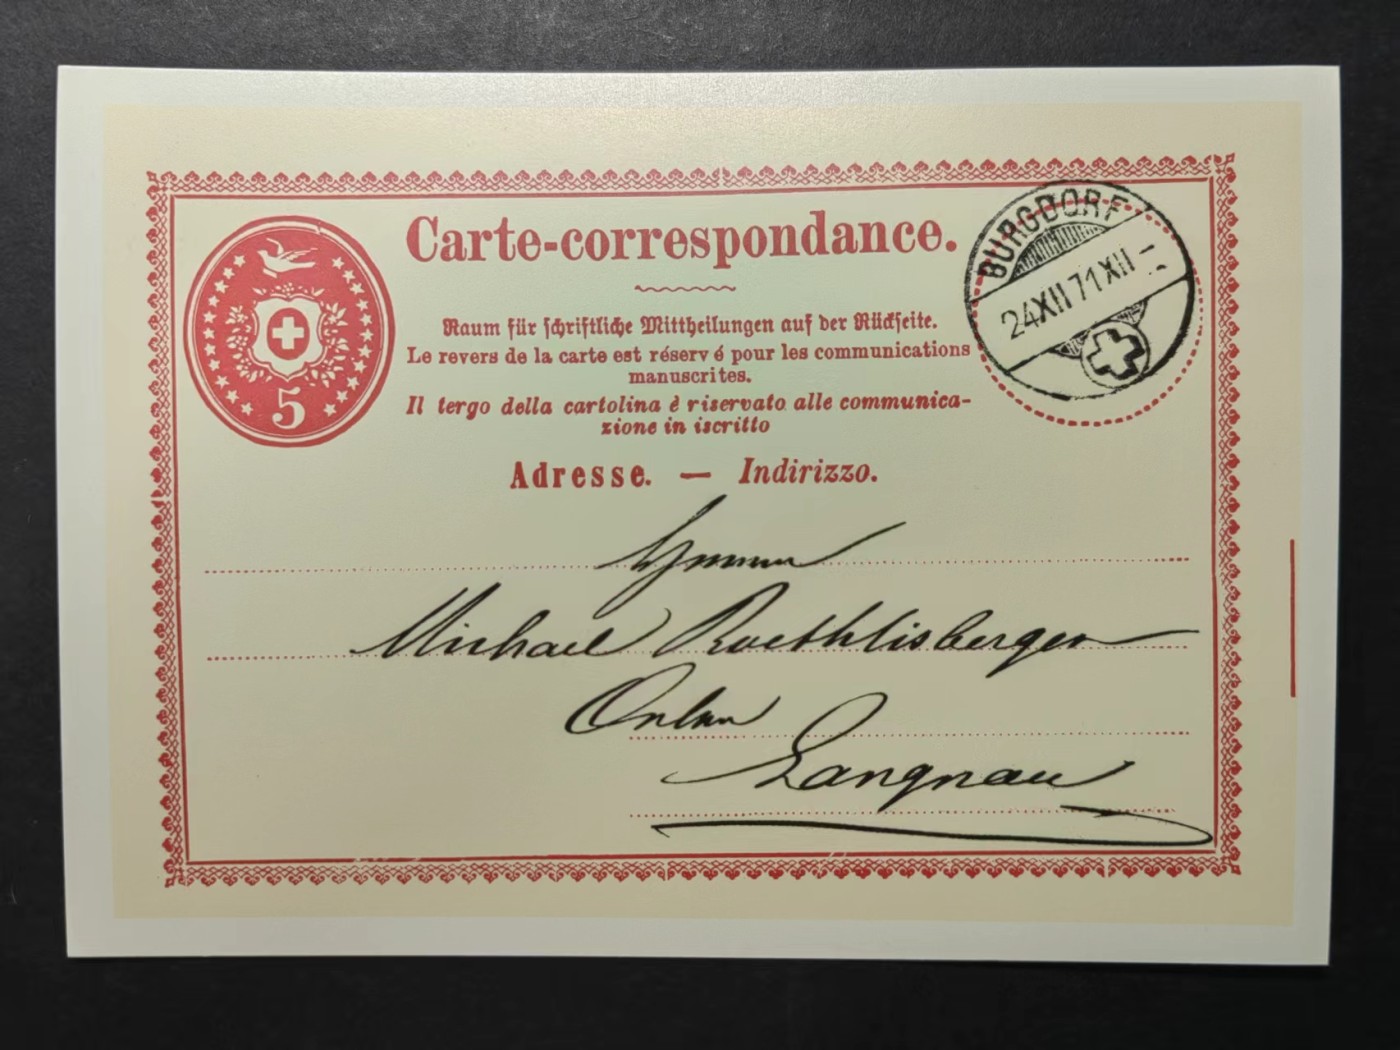 Carte-correspondance.
Raum für schriftliche Mittheilungen auf der Rückseite.
Le revers de la carte est réservé pour les communications
manuscrites.
Il tergo della cartolina è riservato alle communica-
zione in iscritto
Adresse. — Indirizzo.
5
BURGDORF
24 XII 71 XII –
Michael Roethlisberger
Langnau